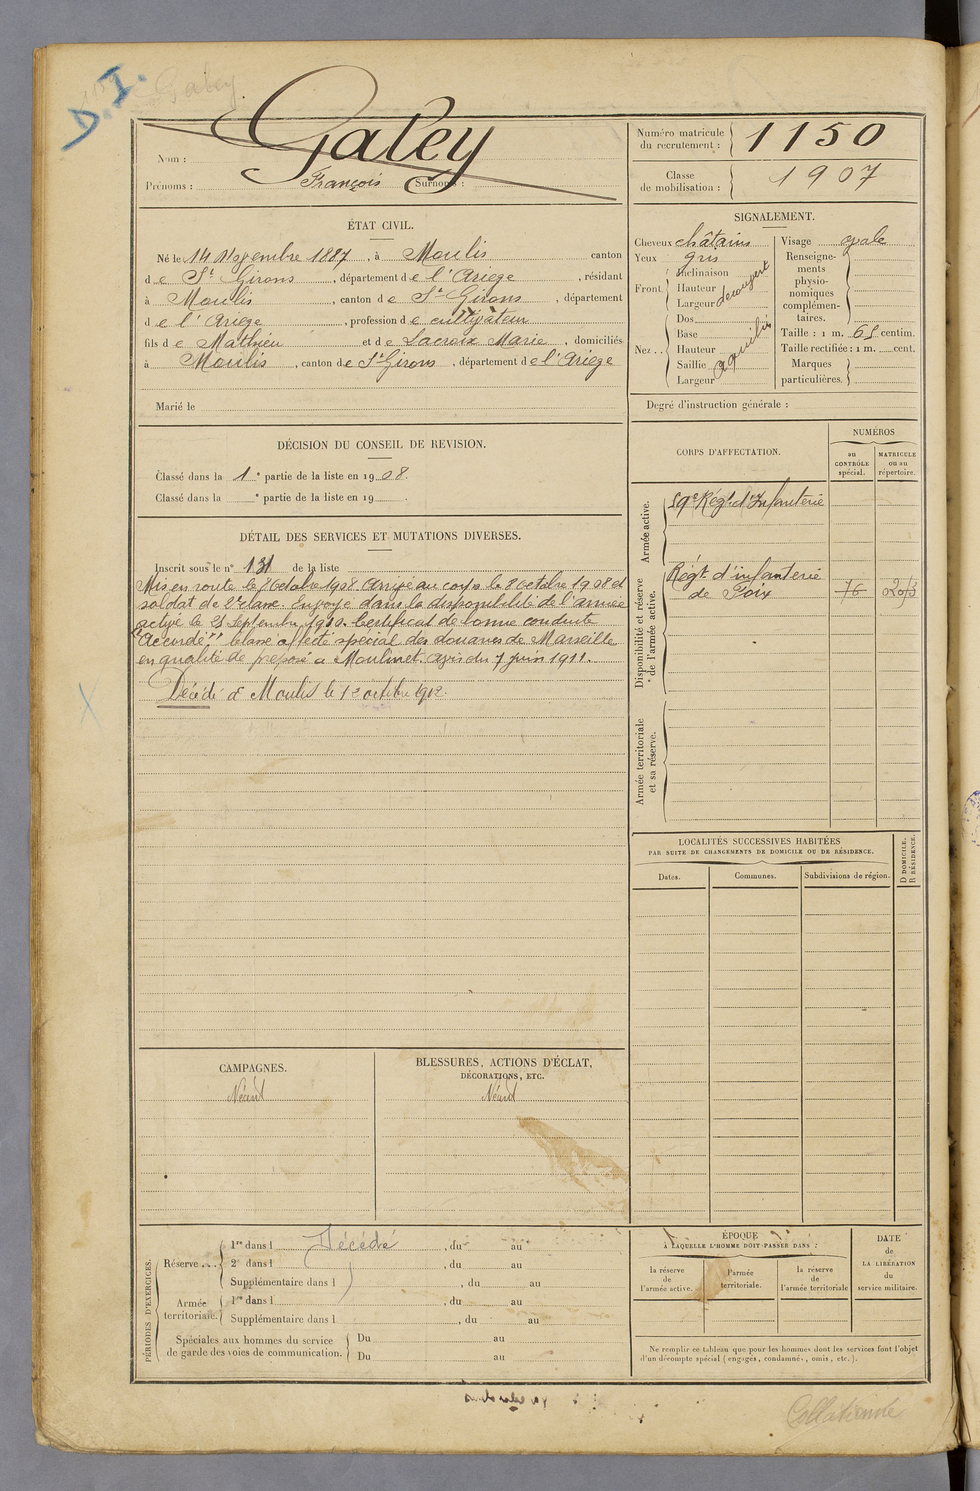 D. I.
Galey
Galey
Nom :
Prénoms : François Surnoms :
Numéro matricule du recrutement : 1150
Classe de mobilisation : 1907
ÉTAT CIVIL.
Né le 14 1887, à Moulis canton
de St Girons, département de l'Ariege, résidant
à Moulis, canton de St Girons, département
de l'Ariege, profession de cultivateur
fils de Mathieu et de Lacroix Marie, domiciliés
à Moulis, canton de St Girons, département de l'Ariege
Marié le
SIGNALEMENT.
Cheveux châtains
Yeux gris
Front Inclinaison
Hauteur
Largeur
découvert
Nez.. Dos
Base
Hauteur
Saillie
Largeur
aquilin
Visage ovale
Renseignements physionomiques complémentaires.
Taille : 1 m. 65 centim.
Taille rectifiée : 1 m. cent.
Marques particulières.
Degré d'instruction générale :
DÉCISION DU CONSEIL DE REVISION.
Classé dans la 1e partie de la liste en 1908.
Classé dans la e partie de la liste en 19 .
DÉTAIL DES SERVICES ET MUTATIONS DIVERSES.
Inscrit sous le n° 131 de la liste
Mis en route le 8 octobre 1908. Arrivé au corps le 8 octobre 1908 et
soldat de 2e classe. Envoyé dans la disponibilité de l'armée
active le 25 Septembre 1910. Certificat de bonne conduite
"Accordé". Classé affecté spécial des douanes de Marseille
en qualité de preposé a Moulinet. Avis du 7 juin 1911.
Décédé à Moulis le 12 octobre 1912.
CORPS D'AFFECTATION.
NUMÉROS
au CONTRÔLE spécial.
MATRICULE ou au répertoire.
Armée active.
59e Régt d'Infanterie
Disponibilité et réserve de l'armée active.
Régt d'infanterie
de Foix 76 02073
Armée territoriale et sa réserve.
LOCALITÉS SUCCESSIVES HABITÉES
PAR SUITE DE CHANGEMENTS DE DOMICILE OU DE RÉSIDENCE.
Dates.
Communes.
Subdivisions de région.
D DOMICILE.
R RÉSIDENCE.
CAMPAGNES.
Néant
BLESSURES, ACTIONS D'ÉCLAT,
DÉCORATIONS, ETC.
Néant
PÉRIODES D'EXERCICES.
Réserve....
1re dans l Décédé, du au
2e dans l , du au
Supplémentaire dans l , du au
Armée territoriale.
1re dans l , du au
Supplémentaire dans l , du au
Spéciales aux hommes du service de garde des voies de communication.
Du au
Du au
ÉPOQUE
À LAQUELLE L'HOMME DOIT PASSER DANS :
la réserve de l'armée active.
l'armée territoriale.
la réserve de l'armée territoriale
DATE
de
LA LIBÉRATION
du
service militaire.
Ne remplir ce tableau que pour les hommes dont les services font l'objet
d'un décompte spécial (engagés, condamnés, omis, etc.).
Collationné